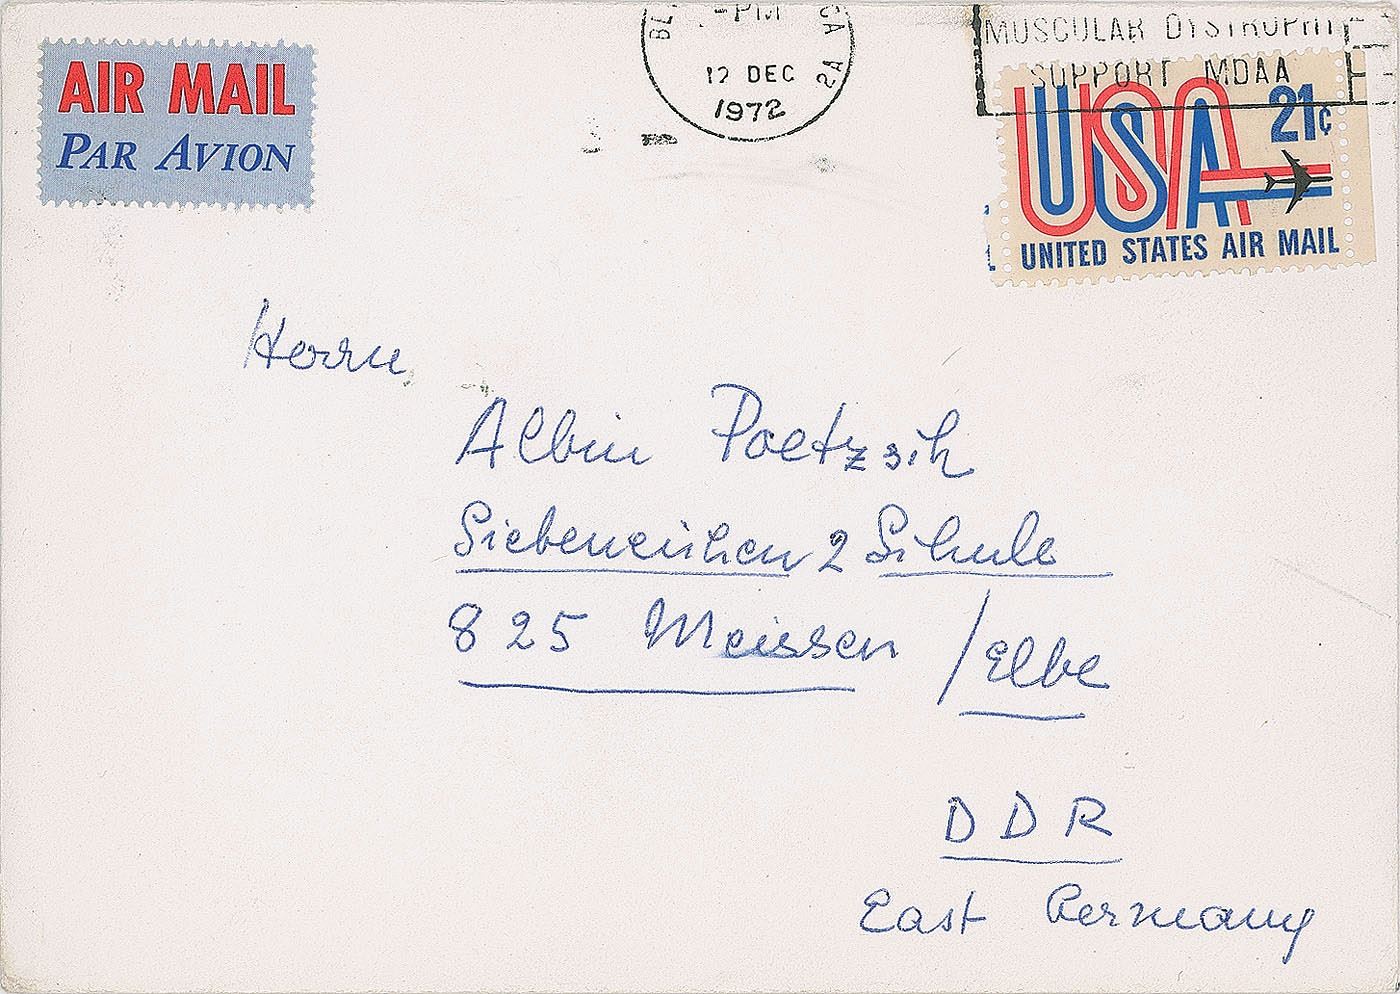 AIR MAIL
PAR AVION
PM
CA
12 DEC
1972
MUSCULAR DYSTROPHY
SUPPORT MDAA
USA 21¢
UNITED STATES AIR MAIL
Herrn
Albin Poetzsch
Siebeneichen 2 Schule
825 Meissen / Elbe
DDR
East Germany